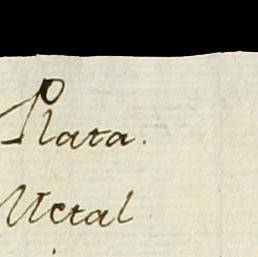 Plata.
Metal